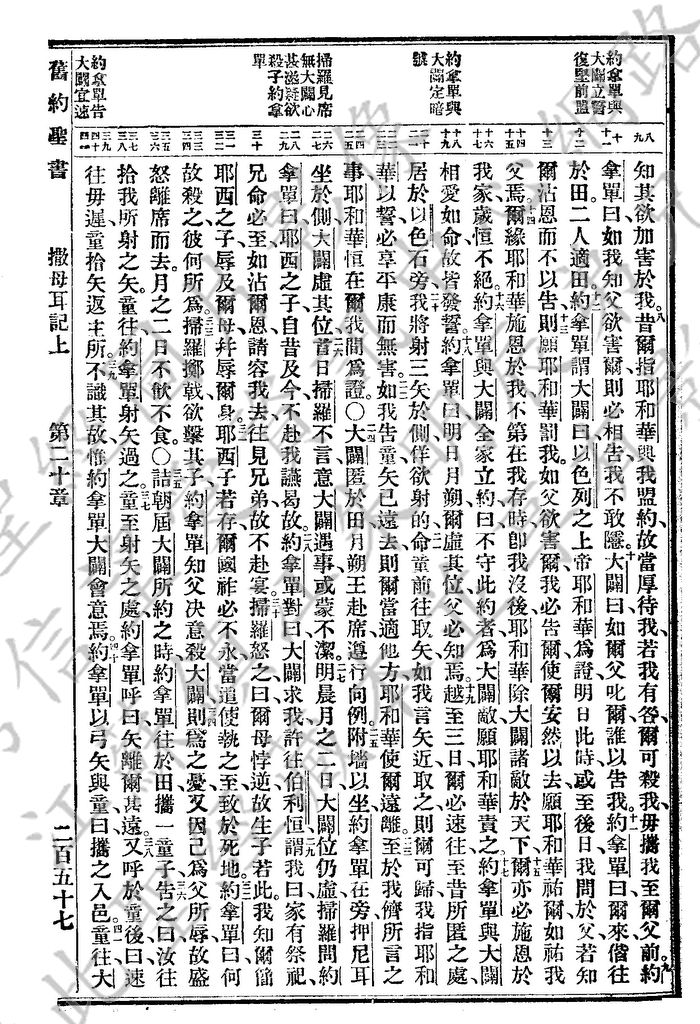 約拿單與
大闢立誓
復堅前盟
約拿單與
大闢定暗
號
掃羅見席
無大闢心
甚滋疑欲
殺子約拿
單
約拿單告
大闢宜速
八
九
十
十一
十二
十三
十四
十五
十六
十七
十八
十九
二十
二一
二二
二三
二四
二五
二六
二七
二八
二九
三十
三一
三二
三三
三四
三五
三六
三七
三八
三九
四十
四一
知其欲加害於我、昔爾指耶和華與我盟約、故當厚待我、若我有咎、爾可殺我、毋攜我至爾父前、約
拿單曰、如我知父欲害爾、則必相告、我不敢隱、大闢曰、如爾父叱爾、誰以告我、約拿單曰、爾來偕往
於田、二人適田、約拿單謂大闢曰、以色列之上帝耶和華爲證、明日此時、或至後日、我問於父、若知
爾沾恩、而不以告、則願耶和華罰我、如父欲害爾、我必告爾、使爾安然以去、願耶和華祐爾、如祐我
父焉、爾緣耶和華施恩於我、不第在我存時、卽我沒後、耶和華除大闢諸敵於天下、爾亦必施恩於
我家、歲恒不絕、約拿單與大闢全家立約曰、不守此約者、爲大闢敵、願耶和華責之、約拿單與大闢
相愛如命、故皆發誓、約拿單曰、明日月朔、爾虛其位、父必知焉、越至三日、爾必速往、至昔所匿之處、
居於以色石旁、我將射三矢於側、佯欲射的、命童前往取矢、如我言矢近取之、則爾可歸、我指耶和
華以誓、必享平康而無害、如我告童、矢已遠去、則爾當適他方、耶和華使爾遠離、至於我儕所言之
事、耶和華恒在爾我間爲證。〇大闢匿於田、月朔、王赴席、遵行向例、附墻以坐、約拿單在旁、押尼耳
坐於側、大闢虛其位、首日掃羅不言、意大闢遇事、或蒙不潔、明晨月之二日、大闢位仍虛、掃羅問約
拿單曰、耶西之子、自昔及今、不赴我讌、曷故、約拿單對曰、大闢求我許往伯利恒、謂我曰、家有祭祀、
兄命必至、如沾爾恩、請容我去、往見兄弟、故不赴宴、掃羅怒之曰、爾母悖逆、故生子若此、我知爾簡
耶西之子、辱及爾母、并辱爾身、耶西子若存、爾國祚必不永、當遣使執之至、致於死地、約拿單曰、何
故殺之、彼何所爲、掃羅擲戟、欲擊其子、約拿單知父決意殺大闢、則爲之憂、又因己爲父所辱、故盛
怒離席而去、月之二日不飮不食。〇詰朝、屆大闢所約之時、約拿單往於田、攜一童子、告之曰、汝往
拾我所射之矢、童往、約拿單射矢過之、童至射矢之處、約拿單呼曰、矢離爾其遠、又呼於童後曰、速
往毋遲、童拾矢返主所、不識其故、惟約拿單大闢會意焉、約拿單以弓矢與童曰、攜之入邑、童往、大
舊約聖書
撒母耳記上
第二十章
二百五十七